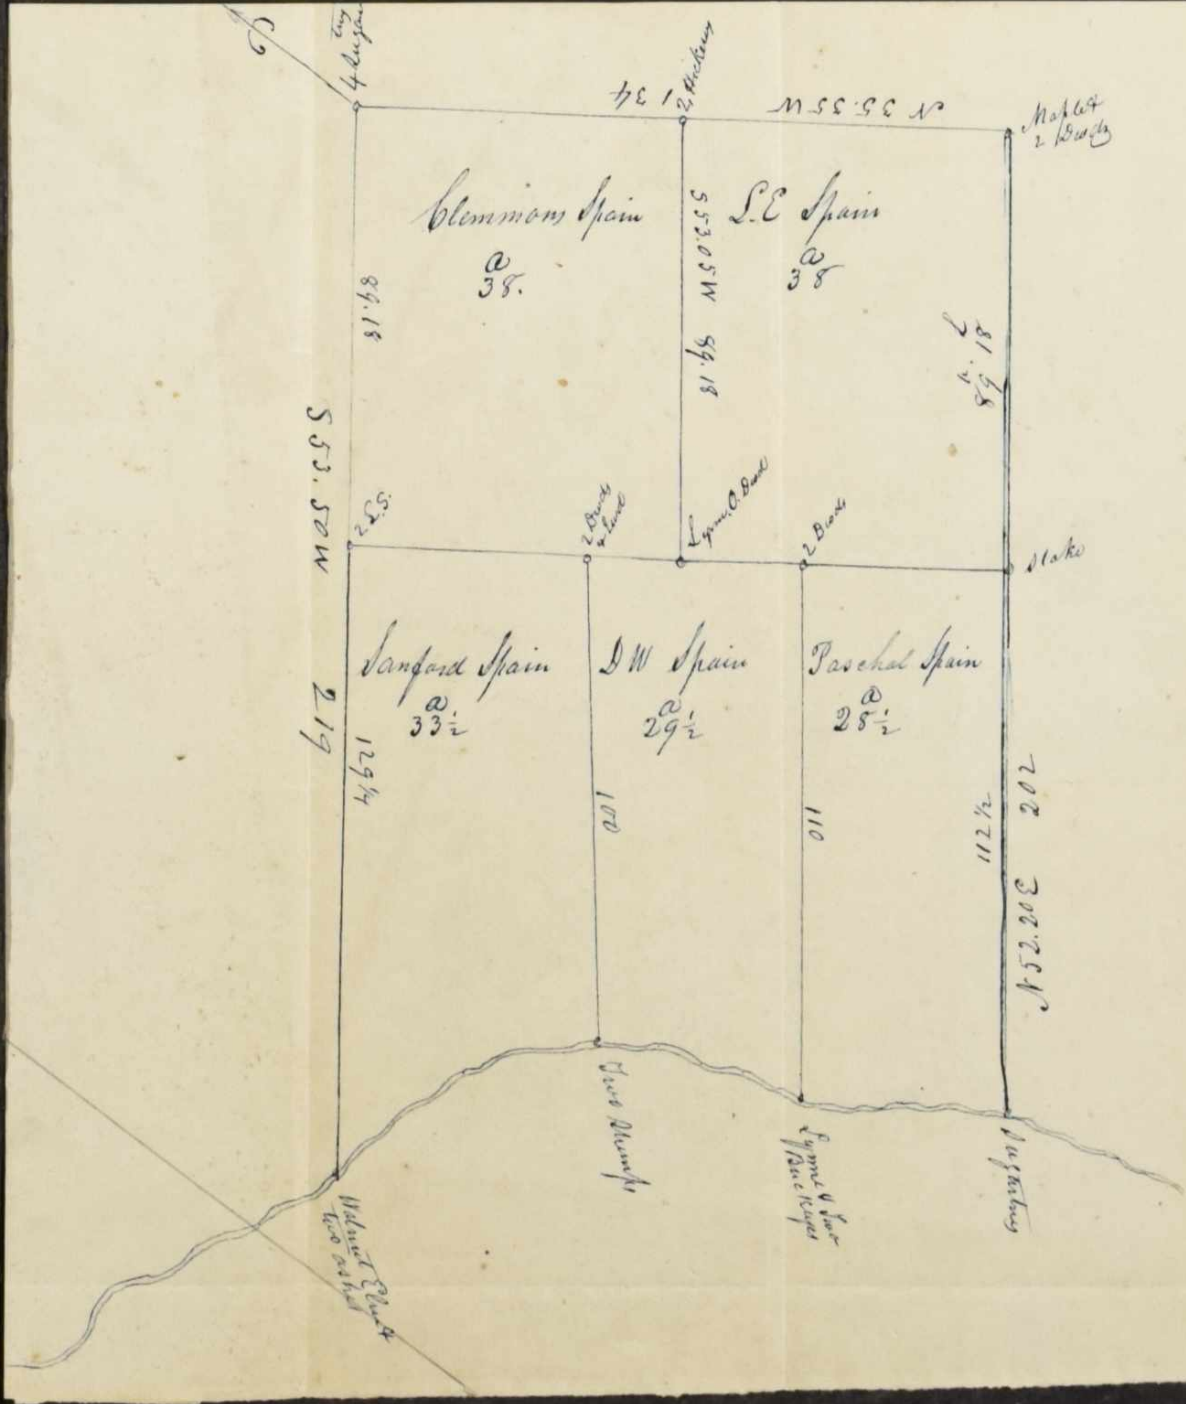 N 35.35 W
134
2 Hickory
Maple &
2 Dwds
Clemmons Spain
a
38.
L.E Spain
a
38
S53.05W 89.18
89.18
89.18
S53.50W 219
2 L.S.
2 Dwds
Lynn, O. Dwd
2 Dwds
Stake
Sanford Spain
a
33½
D W Spain
a
29½
Paschal Spain
a
28½
129¼
100
110
112½
N52.20E 202
Two Stumps
Lynne & Two
Buckeyes
Sugartree
Walnut Elm &
two ashes